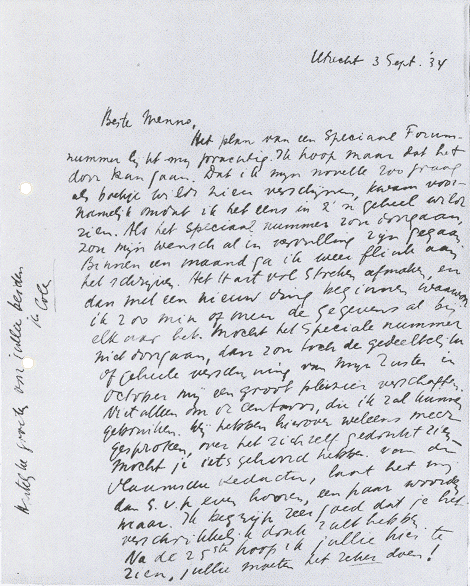 Utrecht 3 Sept. '34
Beste Menno,
Het plan van een Speciaal Forum-
nummer lijkt mij prachtig. Ik hoop maar dat het
door kan gaan. Dat ik mijn novelle zoo graag
als boekje wilde zien verschijnen, kwam voor-
namelijk omdat ik het eens in z'n geheel wilde
zien. Als het Speciaal nummer zou doorgaan,
zou mijn wensch al in vervulling zijn gegaan.
Binnen een maand ga ik weer flink aan
het schrijven. Het Hart vol Streken afmaken, en
dan met een nieuw ding beginnen waarvan
ik zoo min of meer de gegevens al bij
elkaar heb. Mocht het speciale nummer
niet doorgaan, dan zou toch de gedeeltelijke
of geheele verschijning van mijn Zuster in
October mij een groot plezier verschaffen.
Niet alleen om de centen, die ik zal kunnen
gebruiken. Wij hebben hierover weleens meer
gesproken, over het zichzelf gedrukt zien.
Mocht je iets gehoord hebben van de
Vlaamsche redactie, laat het mij
dan s.v.p. even hooren, een paar woorden
maar. Ik begrijp zeer goed dat je het
verschrikkelijk druk zult hebben.
Na de 25ste hoop ik jullie hier te
zien, jullie moeten het zeker doen!
Hartelijke groeten voor jullie beiden
Cola